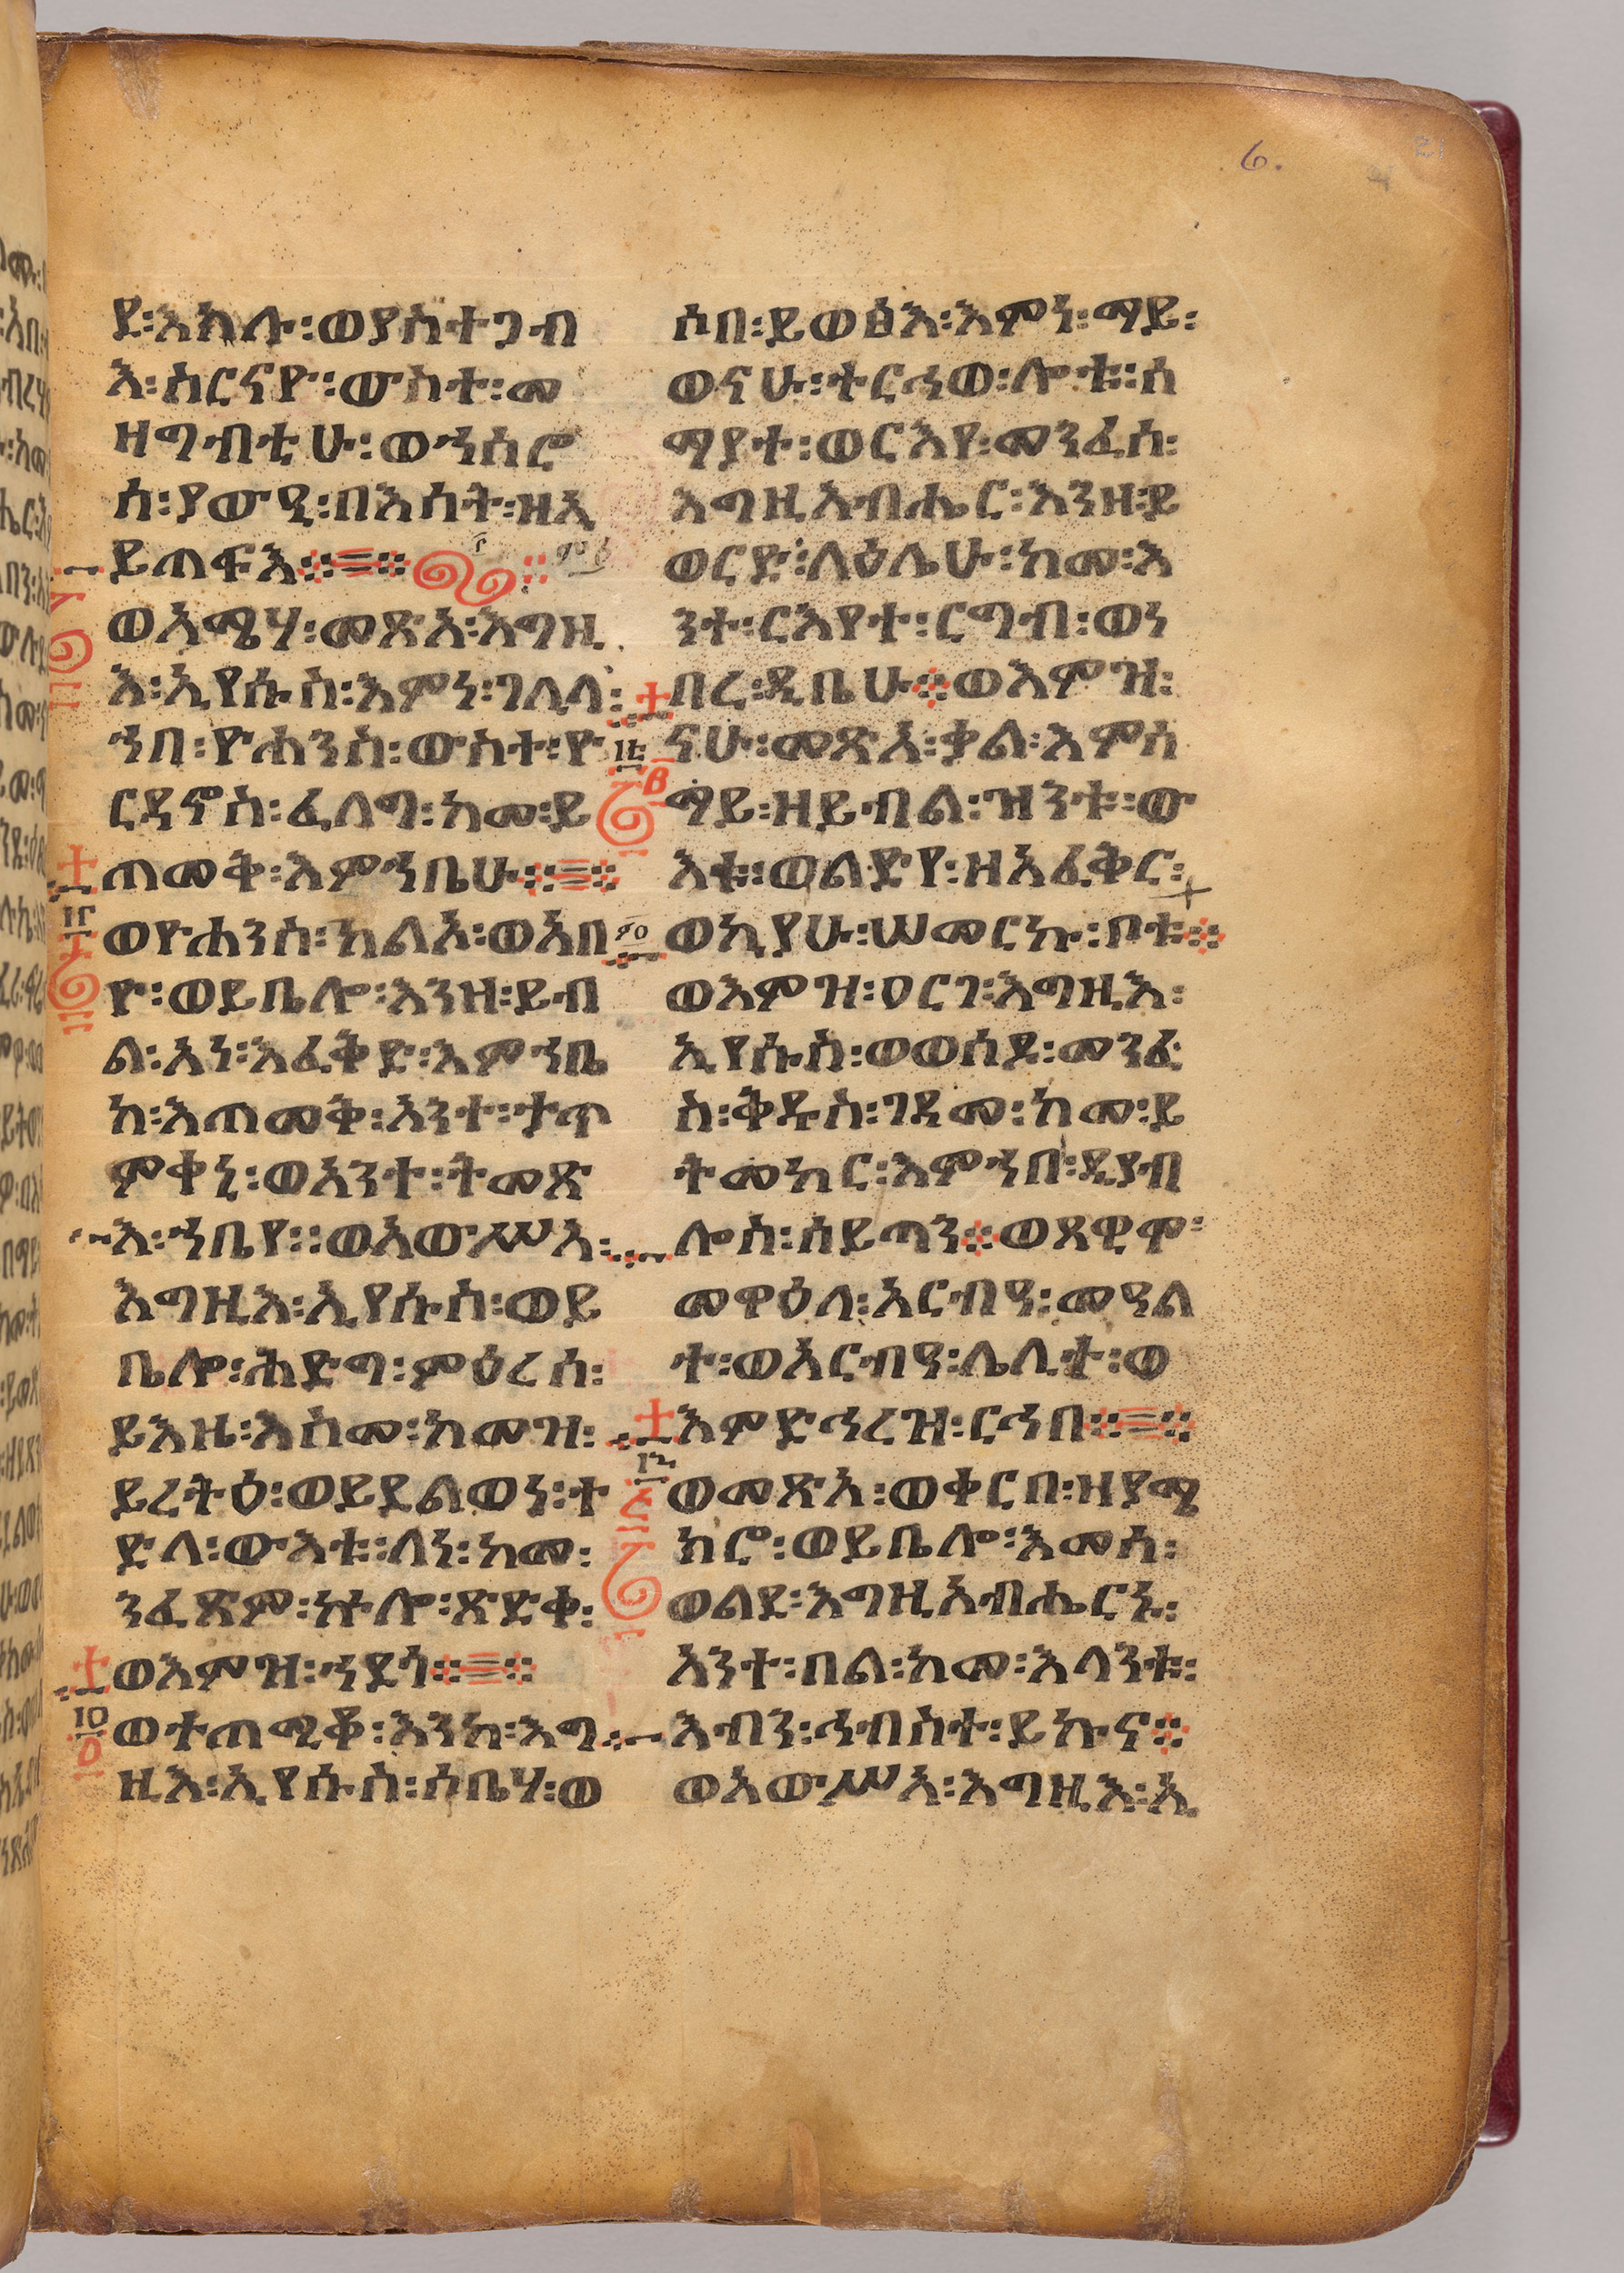 6.
ደ፡እክሉ፡ወያስተጋብ
እ፡ስርናዮ፡ውስተ፡መ
ዛግብቲሁ፡ወኀሰሮ
ሰ፡ያውዒ፡በእሳት፡ዘኢ
ይጠፍእ፨
ወአሜሃ፡መጽአ፡እግዚ
እ፡ኢየሱስ፡እምነ፡ገሊላ፡
ኀበ፡ዮሐንስ፡ውስተ፡ዮ
ርዳኖስ፡ፈለግ፡ከመ፡ይ
ጠመቅ፡እምኀቤሁ፨
ወዮሐንስ፡ከልአ፡ወአበ
ዮ፡ወይቤሎ፡እንዘ፡ይብ
ል፡አነ፡እፈቅድ፡እምኀቤ
ከ፡እጠመቅ፡አንተ፡ታጥ
ምቀኒ፡ወአንተ፡ትመጽ
እ፡ኀቤየ፡፡ወአውሥአ፡
እግዚእ፡ኢየሱስ፡ወይ
ቤሎ፡ሕድግ፡ምዕረሰ፡
ይእዜ፡እስመ፡ከመዝ፡
ይረትዕ፡ወይደልወነ፡ተ
ድላ፡ውእቱ፡ለነ፡ከመ፡
ንፈጽም፡ኵሎ፡ጽድቀ፡
ወእምዝ፡ኀደጎ፨
ወተጠሚቆ፡እንከ፡እግ
ዚእ፡ኢየሱስ፡ሶቤሃ፡ወ
ሶበ፡ይወፅእ፡እምነ፡ማይ፡
ወናሁ፡ተርኅወ፡ሎቱ፡ሰ
ማያተ፡ወርእየ፡መንፈሰ፡
እግዚአብሔር፡እንዘ፡ይ
ወርድ፡ላዕሌሁ፡ከመ፡እ
ንተ፡ርእየተ፡ርግብ፡ወነ
በረ፡ዲቤሁ፨ወእምዝ፡
ናሁ፡መጽአ፡ቃል፡እምሰ
ማይ፡ዘይብል፡ዝንቱ፡ው
እቱ፡ወልድየ፡ዘአፈቅር፡
ወኪያሁ፡ሠመርኩ፡ቦቱ፨
ወእምዝ፡ዐርገ፡እግዚእ፡
ኢየሱስ፡ወወሰዶ፡መንፈ
ስ፡ቅዱስ፡ገዳመ፡ከመ፡ይ
ትመከር፡እምኀበ፡ዲያብ
ሎስ፡ሰይጣን፨ወጸዊሞ፡
መዋዕለ፡አርብዓ፡መዓል
ተ፡ወአርብዓ፡ሌሊተ፡ወ
እምድኅረዝ፡ርኅበ፨
ወመጽአ፡ወቀርበ፡ዘያሜ
ክሮ፡ወይቤሎ፡እመሰ፡
ወልደ፡እግዚአብሔርኑ፡
አንተ፡በል፡ከመ፡እላንቱ፡
እብን፡ኅብስተ፡ይኩኖ፨
ወአውሥአ፡እግዚእ፡ኢ